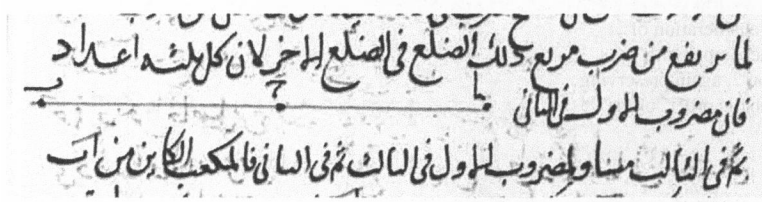 لما يرتفع من ضرب مربع ذلك الضلع فى الضلع الاخر لان كل ثلثه اعداد
فان مضروب الاول فى الثانى
ا ج ب
ثم فى الثالث مساو لمضروب الاول فى الثالث ثم فى الثانى فالمكعب الكاين من اب